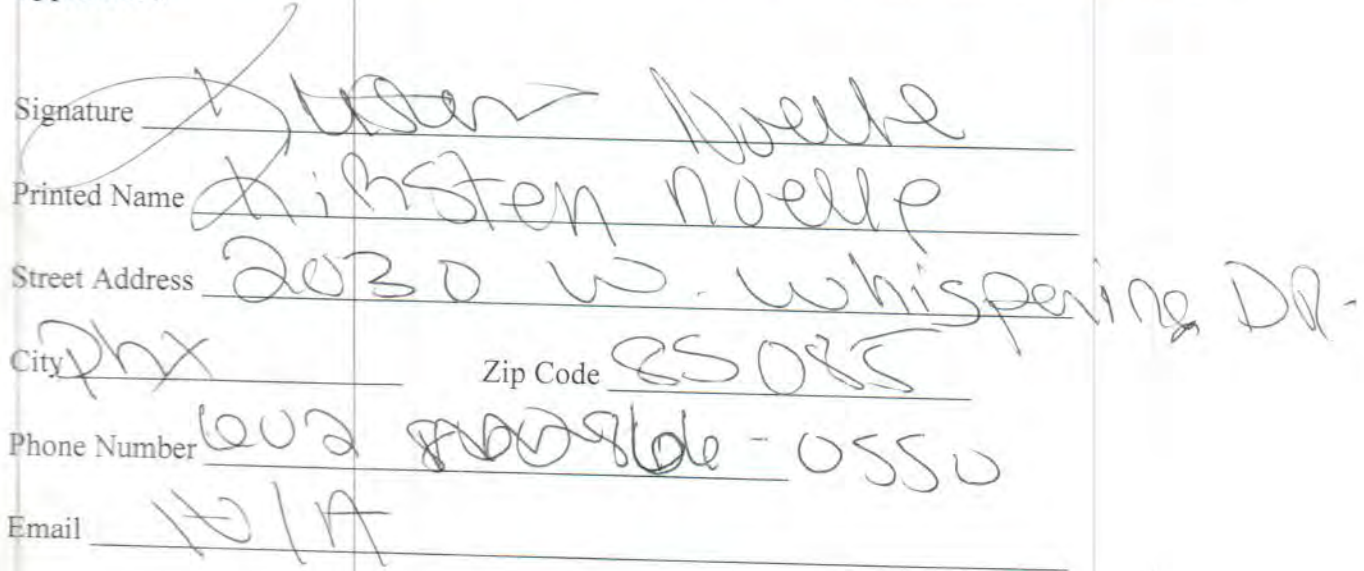 Signature Kirsten Noelle
Printed Name Kirsten Noelle
Street Address 2030 W. Whispering DR.
City Phx Zip Code 85085
Phone Number 602 866-0550
Email N/A